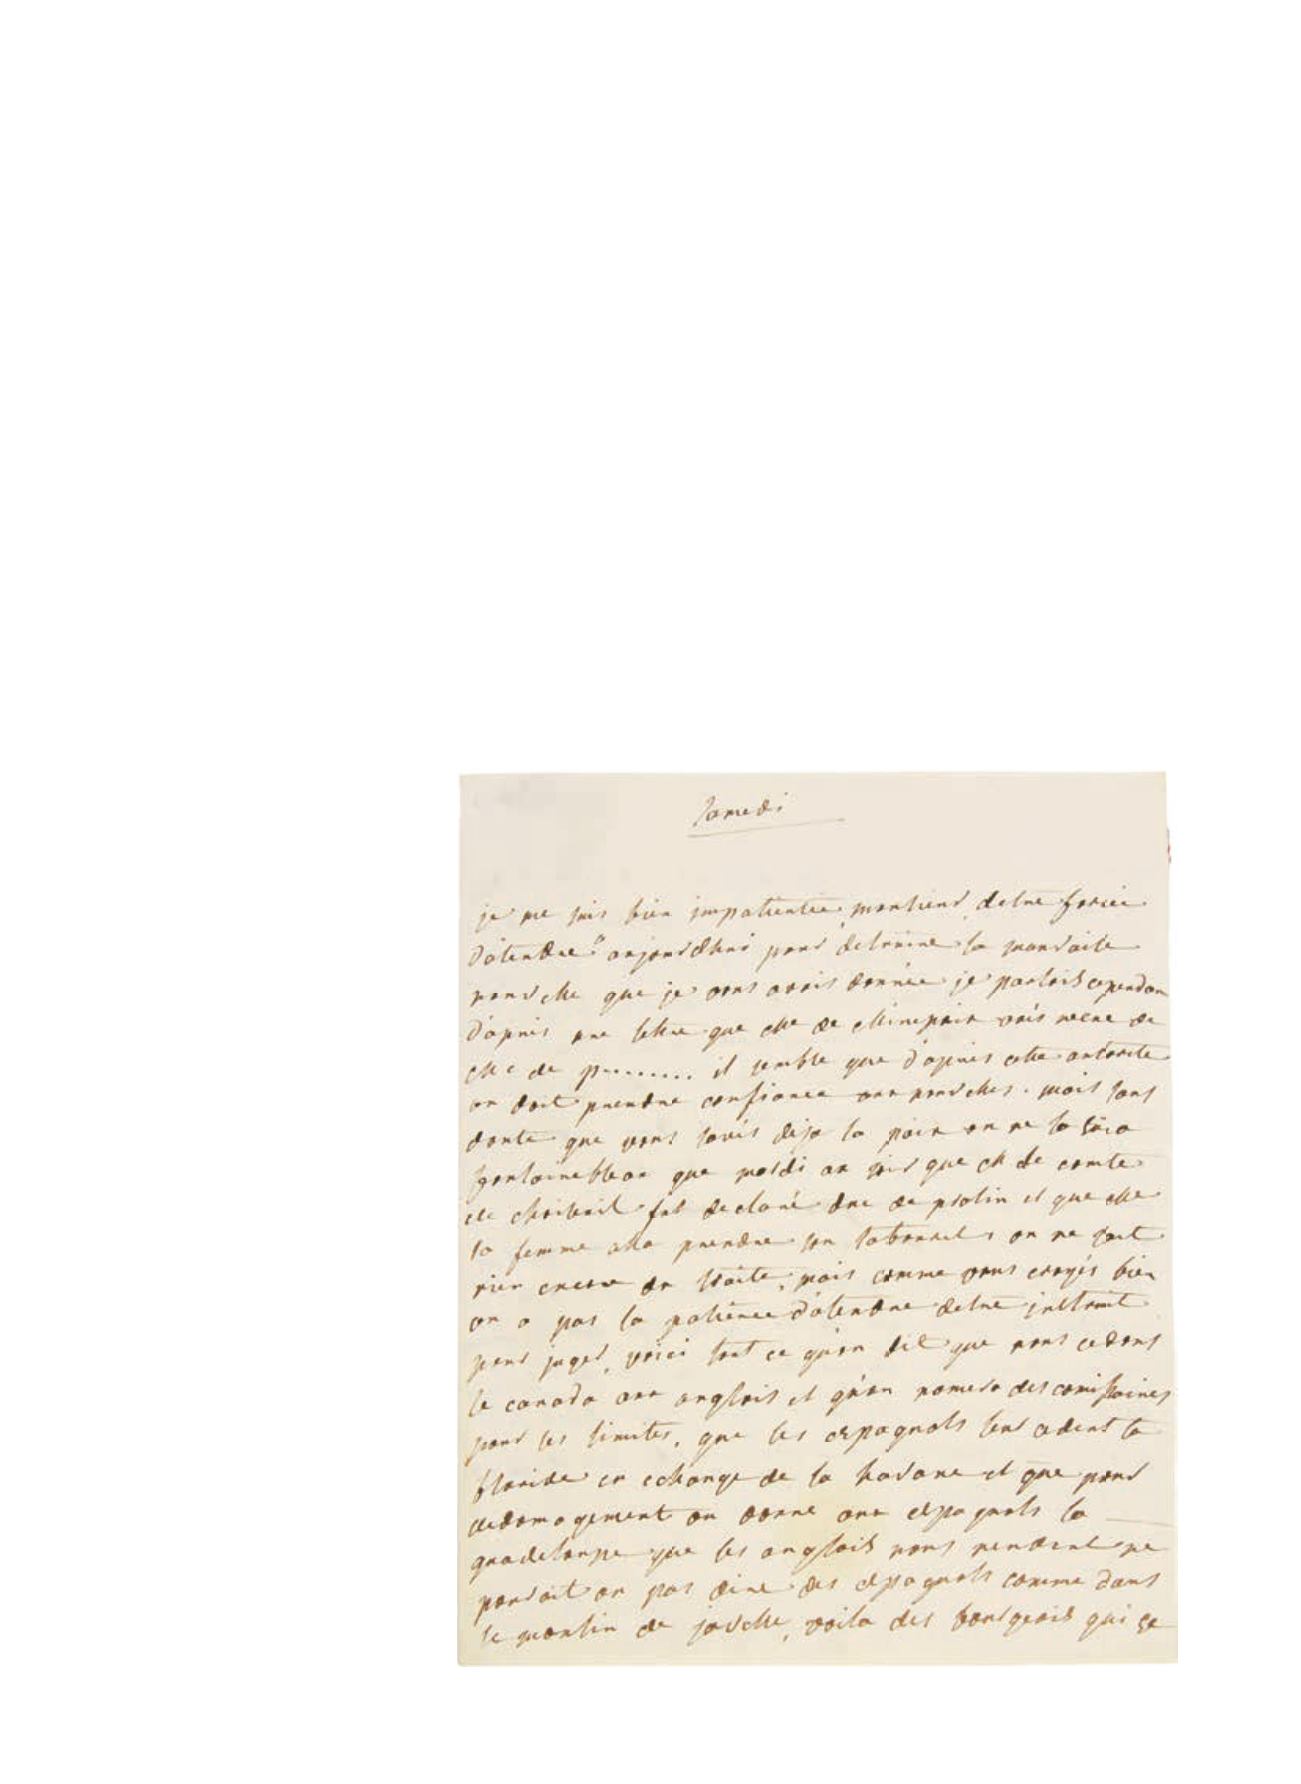 Samedi
je me suis bien impatientée, monsieur, detre forcée
d'atendre a aujourdhui pour detruire la mauvaise
nouvelle que je vous avois donnée je parlois cependan
d'apres une lettre que me de mirepoix avoit recue de
me de p........ il semble que d'apres cette autorité
on doit prendre confiance aux nouvelles. mais sans
doute que vous savés deja la paix on ne la sçu a
fontainebleau que mardi au soir que le comte
de choiseul fut declaré duc de pralin et que
sa femme alla prendre son tabouret, on ne sait
rien encore du traité, mais comme vous croyés bien
on a pas la patience d'atendre detre instruit
pour juger, voici tout ce qu'on dit que nous cedons
le canada aux anglois et qu'on nomera des comissaires
pour les limites, que les espagnols leur cedent la
floride en echange de la havane et que pour
dedomagement on donne aux espagnols la
guadeloupe que les anglois nous rendent ne
pouroit on pas dire des espagnols comme dans
le moulin de javelle, voila des bourgeois qui se